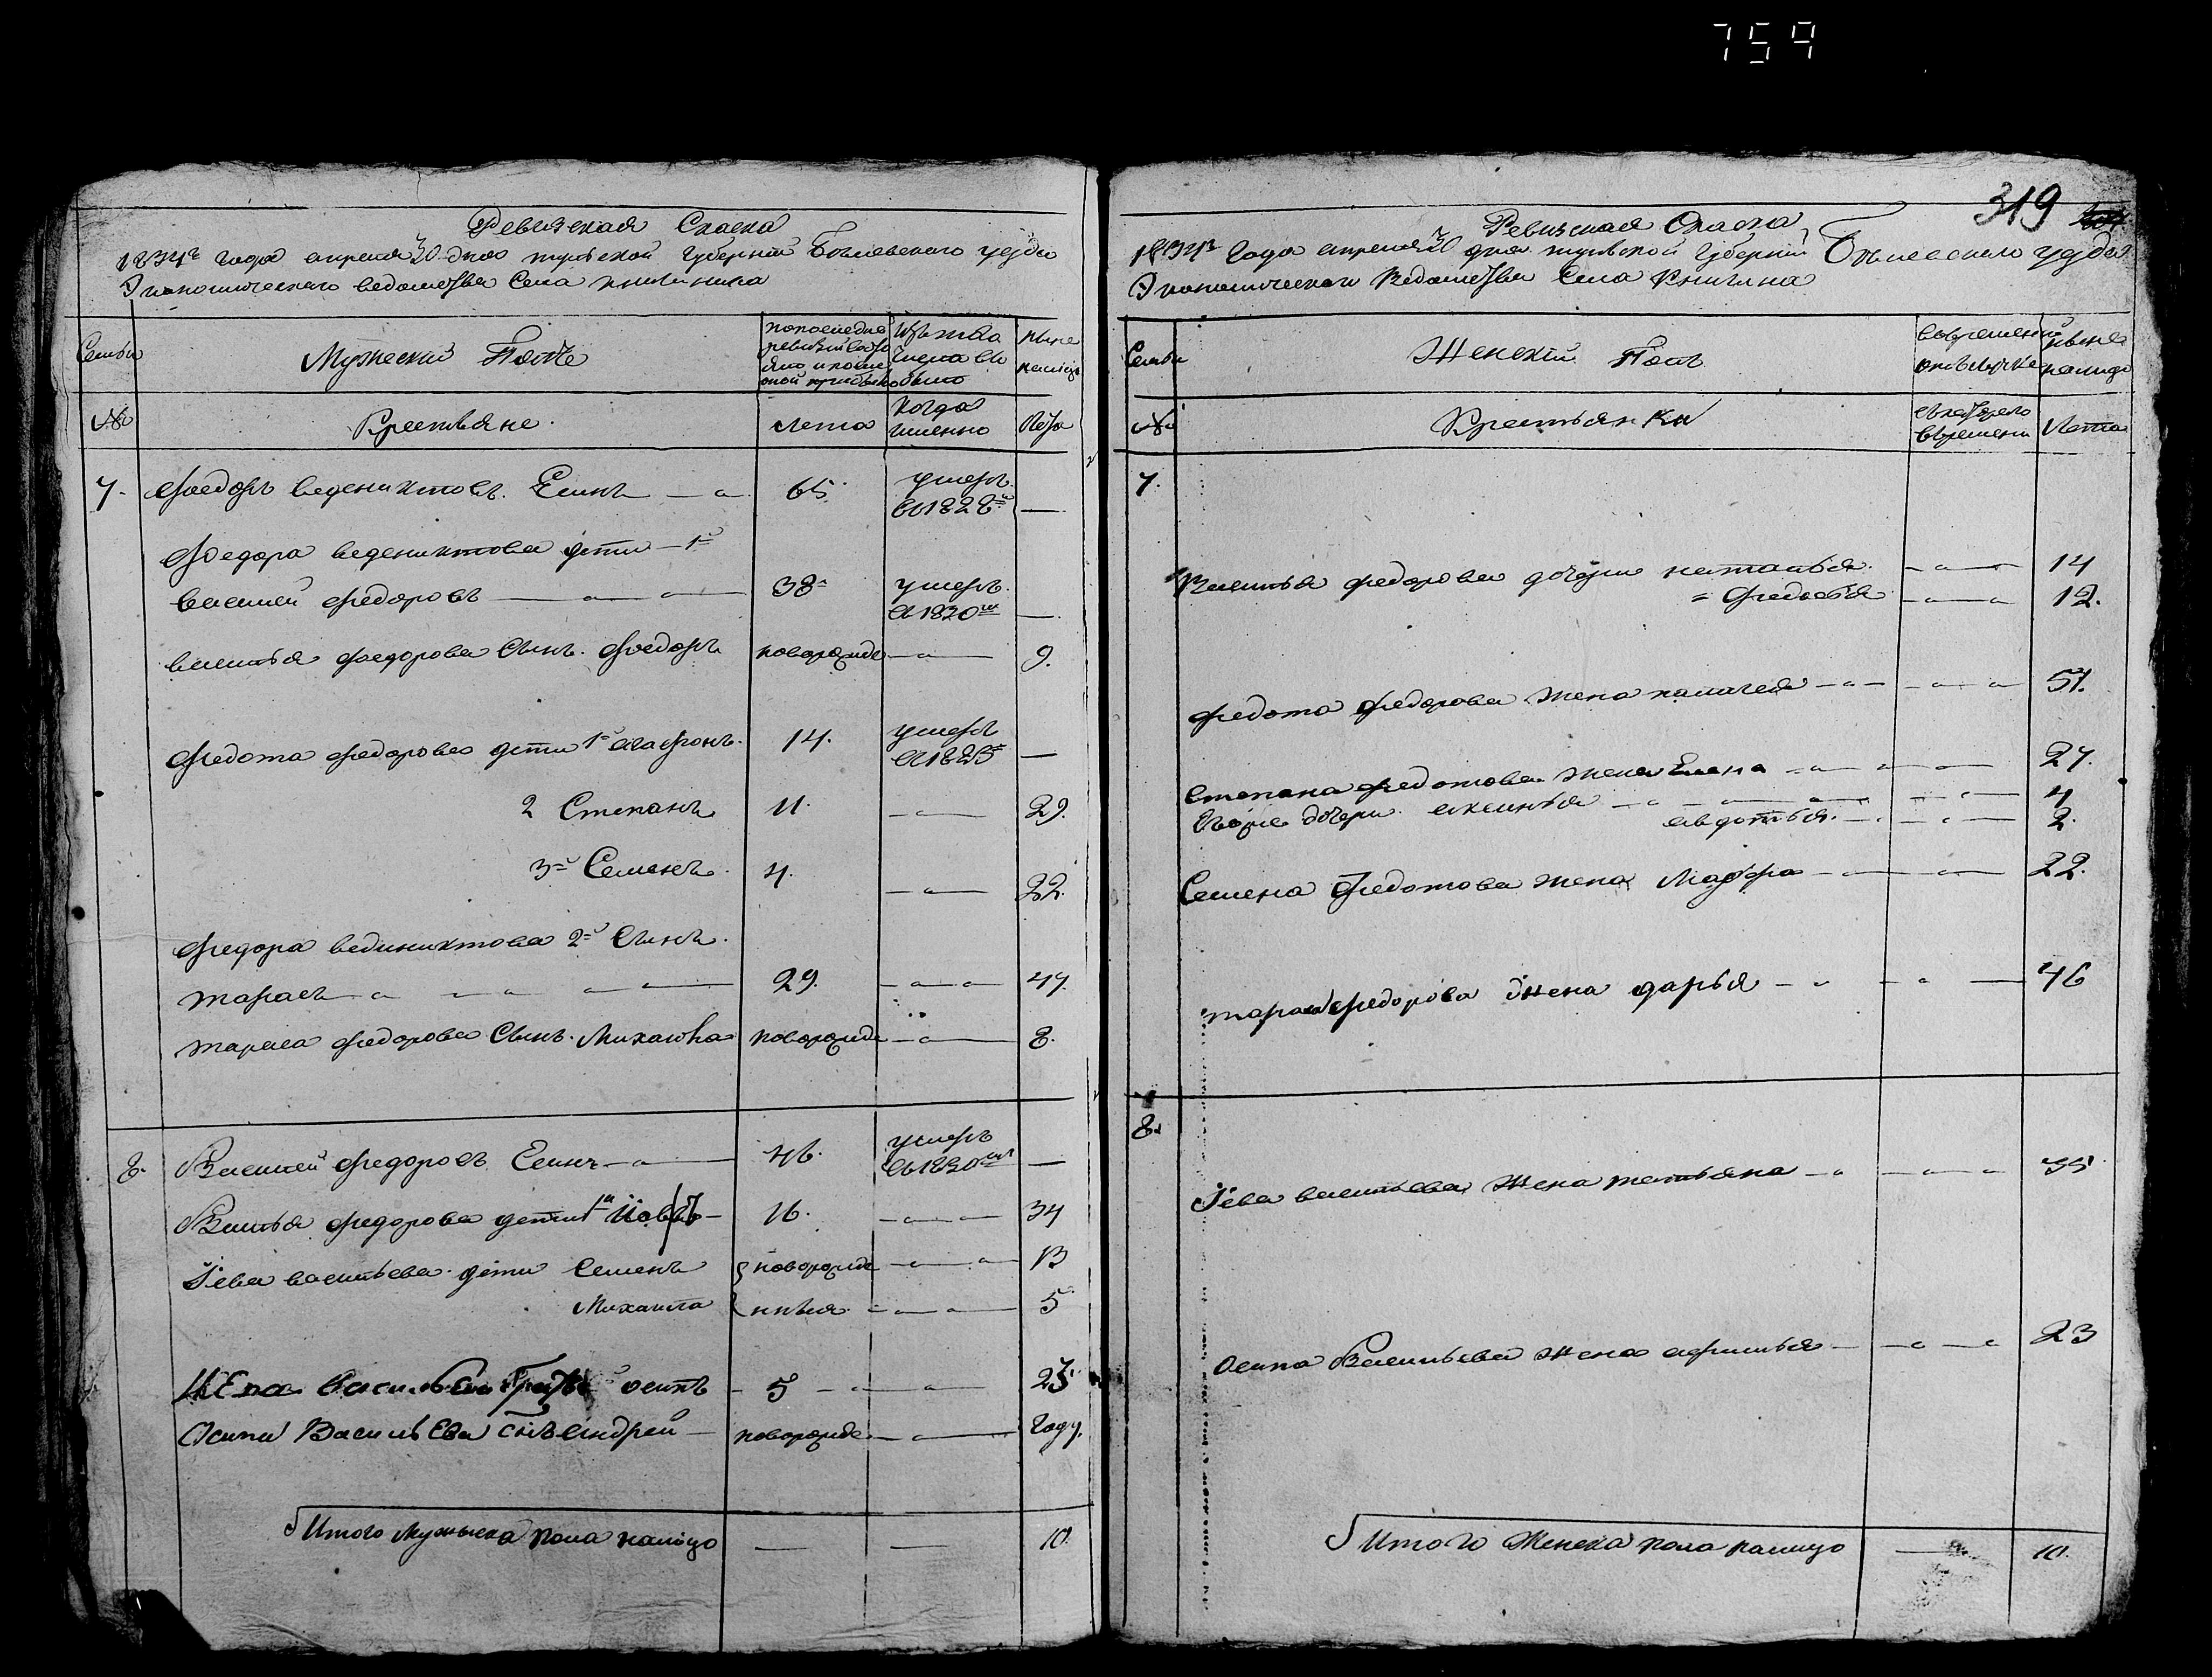 759
Ревизская Сказка
1834го года апреля 30 дня тульской Губернии Бѣлевскаго уезда
Экономическаго ведомства Села
Семьи
Мужеский Полъ
Изъ того числа
ныне налицо
№
Крестьяне.
лета
Когда именно
Лета
7. Федоръ ведениктовъ. Елинъ 65. умеръ въ 1828м —
Федора ведениктова дети — 1й
василей федоровъ 38 умеръ в 1830м —
василья федорова Сынъ. Федоръ новорожде 9.
федота федорова дети 1й агафонъ. 14. умеръ в 1825 —
2 Степанъ 11. 29.
3й Семенъ. 4. 22.
федора ведениктова 2й Сынъ.
тарасъ 29. 47.
тараса федорова Сынъ. Михайла новорожде 8.
8. Василей федоровъ Елинъ 46. умеръ въ 1830м —
Василья федорова дети 1й 16. 34
Іева васильева дети Семенъ новорожде 13
Михайла нныя 5
осипъ 5 23
Осипа Васильева Снъ андрей новорожде году.
Итого Мужеска пола налицо — — 10.
319
Ревизская Сказка
1834го Года апреля 30 дня тульской Губернии Бѣлевскаго уезда
Экономическаго Ведомства Села
Семьи
Женскій Полъ
во временной отлучке
ныне налицо
№
Крестьянки
съ котораго времени
Лета
7.
Василья федорова дочери наталья 14
= федосья 12.
федота федорова жена 51.
Степана федотова жена Елена 27.
дочери. аксинья 4
авдотья. 2.
Семена федотова жена Марфа 22.
тараса федорова жена дарья 46
8.
Іева васильева жена татьяна 35
осипа Васильева жена 23
Итого Женска пола налицо — 10.